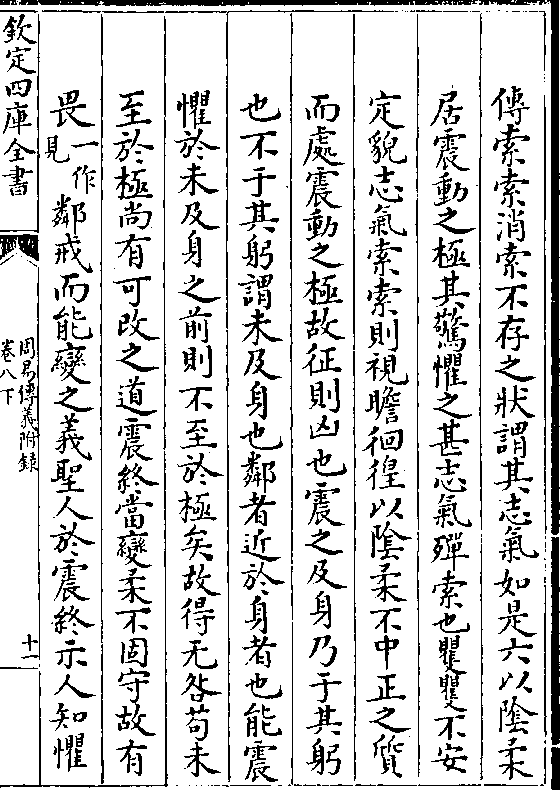 傳索索消索不存之狀謂其志氣如是六以陰柔
居震動之極其驚懼之甚志氣殫索也瞿瞿不安
定貌志氣索索則視瞻徊徨以陰柔不中正之質
而處震動之極故征則凶也震之及身乃于其躬
也不于其躬謂未及身也鄰者近於身者也能震
懼於未及身之前則不至於極矣故得无咎苟未
至於極尚有可改之道震終當變柔不固守故有
畏一作見鄰戒而能變之義聖人於震終示人知懼
欽定四庫全書
周易傳義附錄
卷八下
十一